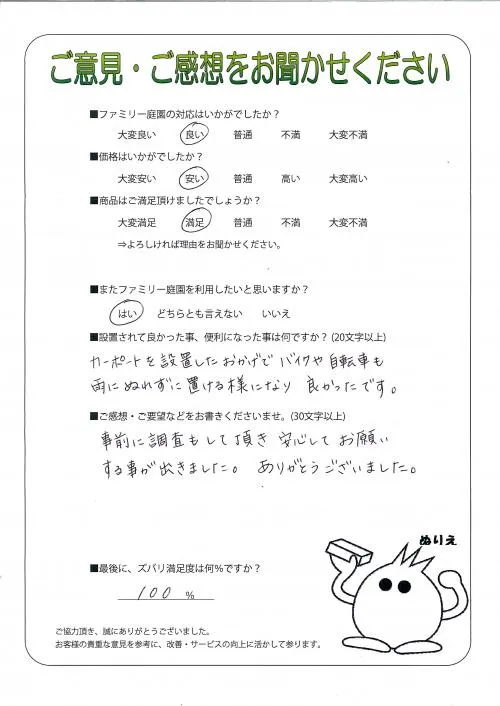 ご意見・ご感想をお聞かせください
■ファミリー庭園の対応はいかがでしたか？
大変良い 良い 普通 不満 大変不満
■価格はいかがでしたか？
大変安い 安い 普通 高い 大変高い
■商品はご満足頂けましたでしょうか？
大変満足 満足 普通 不満 大変不満
⇒よろしければ理由をお聞かせください。
■またファミリー庭園を利用したいと思いますか？
はい どちらとも言えない いいえ
■設置されて良かった事、便利になった事は何ですか？(20文字以上)
カーポートを設置したおかげで バイクや自転車も
雨にぬれずに置ける様になり 良かったです。
■ご感想・ご要望などをお書きくださいませ。(30文字以上)
事前に調査もして頂き 安心して お願い
する事が出きました。 ありがとうございました。
ぬりえ
■最後に、ズバリ満足度は何％ですか？
100 %
ご協力頂き、誠にありがとうございました。
お客様の貴重な意見を参考に、改善・サービスの向上に活かして参ります。